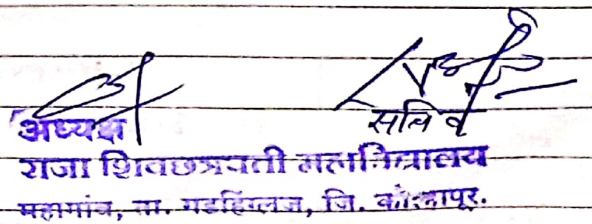 अध्यक्ष सचिव
राजा शिवछत्रपती महाविद्यालय
महागांव, ता. गडहिंग्लज, जि. कोल्हापूर.